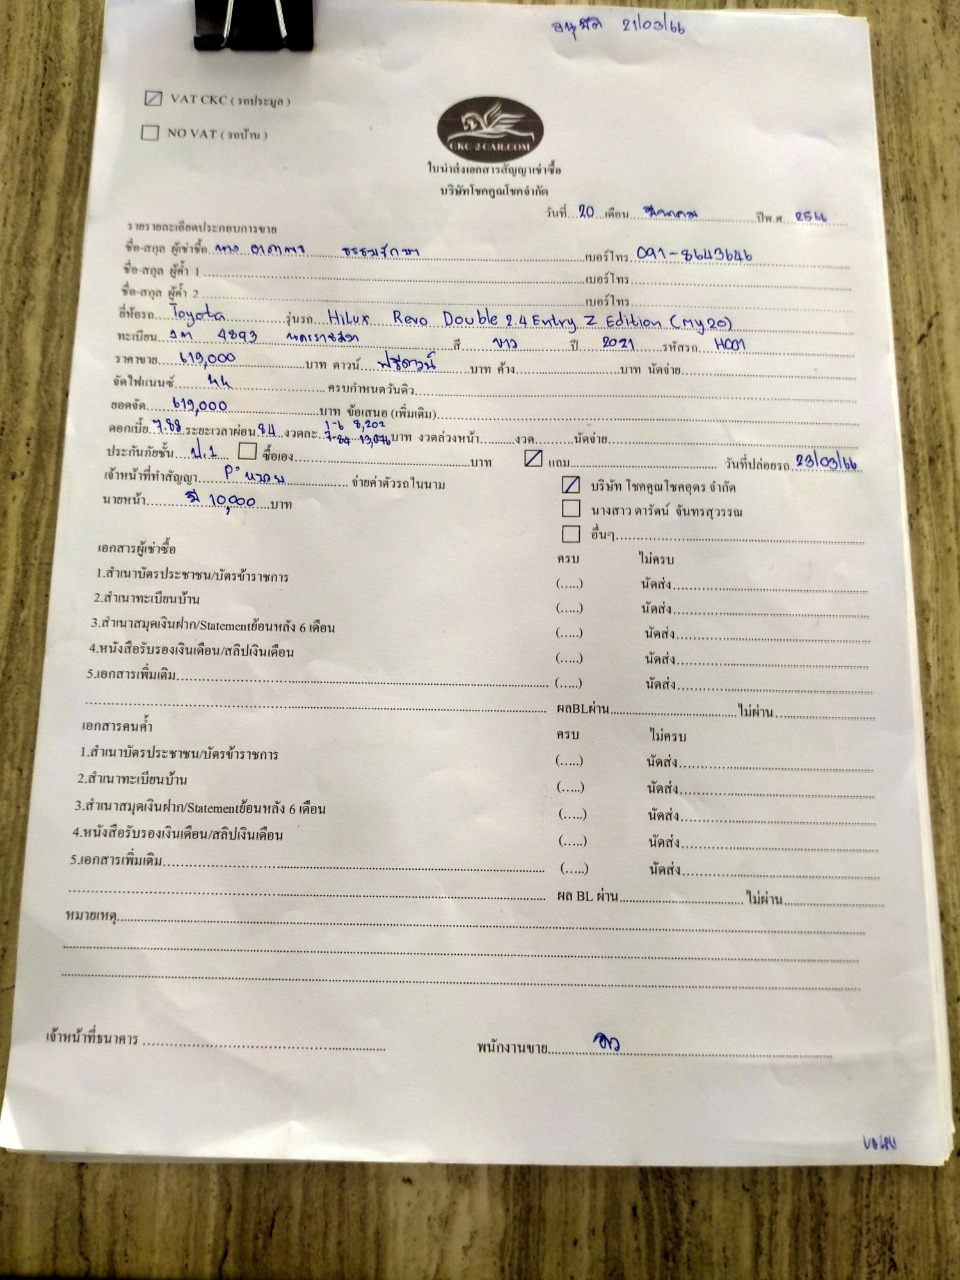 อนุมัติ 21/03/66
VAT CKC ( รถประมูล )
NO VAT ( รถบ้าน )
CKC-2CAR.COM
ใบนำส่งเอกสารสัญญาเช่าซื้อ
บริษัทโชคคูณโชคจำกัด
วันที่ 20 เดือน มีนาคม ปีพ.ศ. 2566
รายรายละเอียดประกอบการขาย
ชื่อ-สกุล ผู้เช่าซื้อ นาง เบอร์โทร 091-8643646
ชื่อ-สกุล ผู้ค้ำ 1 เบอร์โทร
ชื่อ-สกุล ผู้ค้ำ 2 เบอร์โทร
ยี่ห้อรถ Toyota รุ่นรถ Hilux Revo Double 2.4 Entry Z Edition (MY20)
ทะเบียน 4893 นครราชสีมา สี ขาว ปี 2021 รหัสรถ H001
ราคาขาย 619,000 บาท ดาวน์ ฟรีดาวน์ บาท ค้าง บาท นัดจ่าย
จัดไฟแนนซ์ ครบกำหนดวันคิว
ยอดจัด 619,000 บาท ข้อเสนอ (เพิ่มเติม)
ดอกเบี้ย 7.88 ระยะเวลาผ่อน 84 งวดละ 1-6 8,202 7-84 13,076 บาท งวดล่วงหน้า งวด นัดจ่าย
ประกันภัยชั้น ป.1 ซื้อเอง บาท แถม วันที่ปล่อยรถ 23/03/66
เจ้าหน้าที่ทำสัญญา จ่ายค่าตัวรถในนาม บริษัท โชคคูณโชคอุดร จำกัด
นายหน้า มี 10,000 บาท นางสาว ดารัตน์ จันทรสุวรรณ
อื่นๆ
เอกสารผู้เช่าซื้อ ครบ ไม่ครบ
1.สำเนาบัตรประชาชน/บัตรข้าราชการ (.....) นัดส่ง
2.สำเนาทะเบียนบ้าน (.....) นัดส่ง
3.สำเนาสมุดเงินฝาก/Statementย้อนหลัง 6 เดือน (.....) นัดส่ง
4.หนังสือรับรองเงินเดือน/สลิปเงินเดือน (.....) นัดส่ง
5.เอกสารเพิ่มเติม (.....) นัดส่ง
ผลBLผ่าน ไม่ผ่าน
เอกสารคนค้ำ ครบ ไม่ครบ
1.สำเนาบัตรประชาชน/บัตรข้าราชการ (.....) นัดส่ง
2.สำเนาทะเบียนบ้าน (.....) นัดส่ง
3.สำเนาสมุดเงินฝาก/Statementย้อนหลัง 6 เดือน (.....) นัดส่ง
4.หนังสือรับรองเงินเดือน/สลิปเงินเดือน (.....) นัดส่ง
5.เอกสารเพิ่มเติม (.....) นัดส่ง
ผล BL ผ่าน ไม่ผ่าน
หมายเหตุ
เจ้าหน้าที่ธนาคาร พนักงานขาย